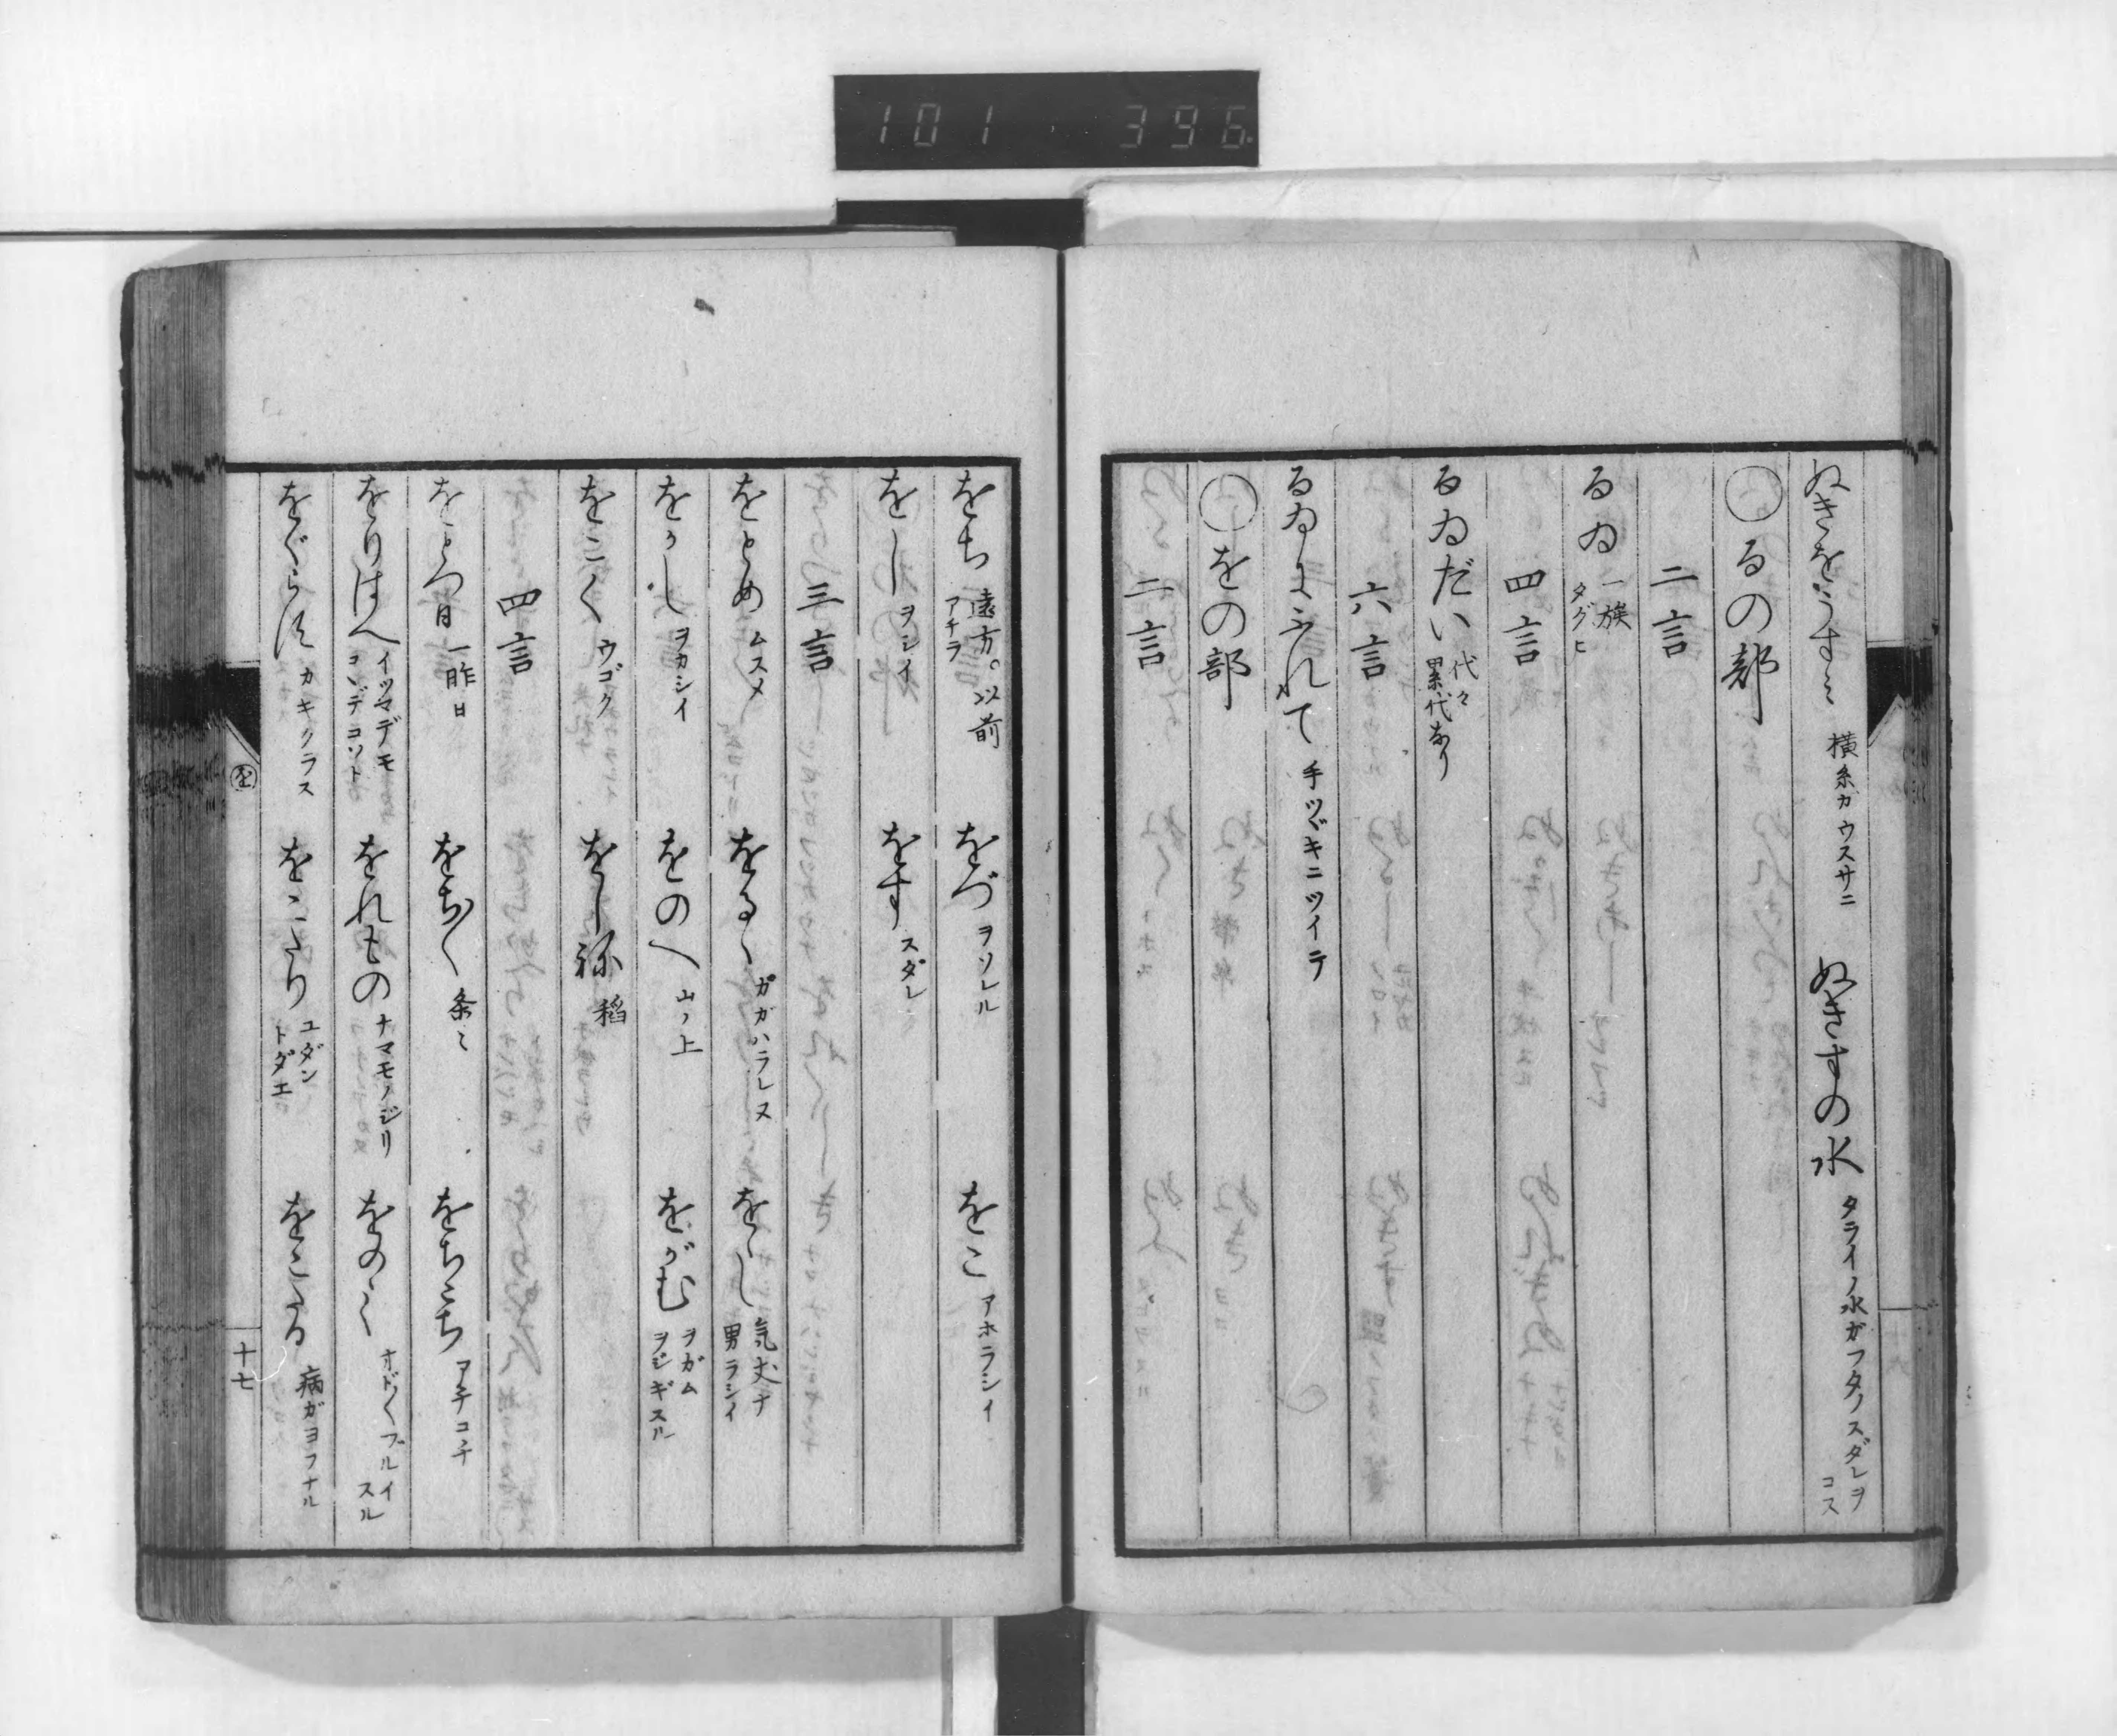 101 396
ぬきをうすミ 横糸ガウスサニ ぬきすの水 タライノ水ガフタノスダレヲコス
○るの部
二言
るゐ 一族 タグヒ
四言
るゐだい 代々 累代なり
六言
るゐにふれて 手ツヾキニツイテ
○をの部
二言
をち 遠方。以前 アチラ をづ ヲソレル をこ アホラシイ
をし ヲシイ をす スダレ
三言
をとめ ムスメ をるく ガガハラレヌ をゝし 気丈ナ 男ラシイ
をかし ヲカシイ をのへ 山ノ上 をがむ ヲガム ヲジギスル
をこく ウゴク をしね 稲
四言
をとつ日 一昨日 をぢ〱 条々 をちこち アチコチ
をりはへ イツマデモ コヽデコソト をれもの ナマモノジリ をのゝく オドヽクフルイスル
をぐらす カキクラス をこたり ユダン トダエ をこたる 病ガヨフナル
を
十七